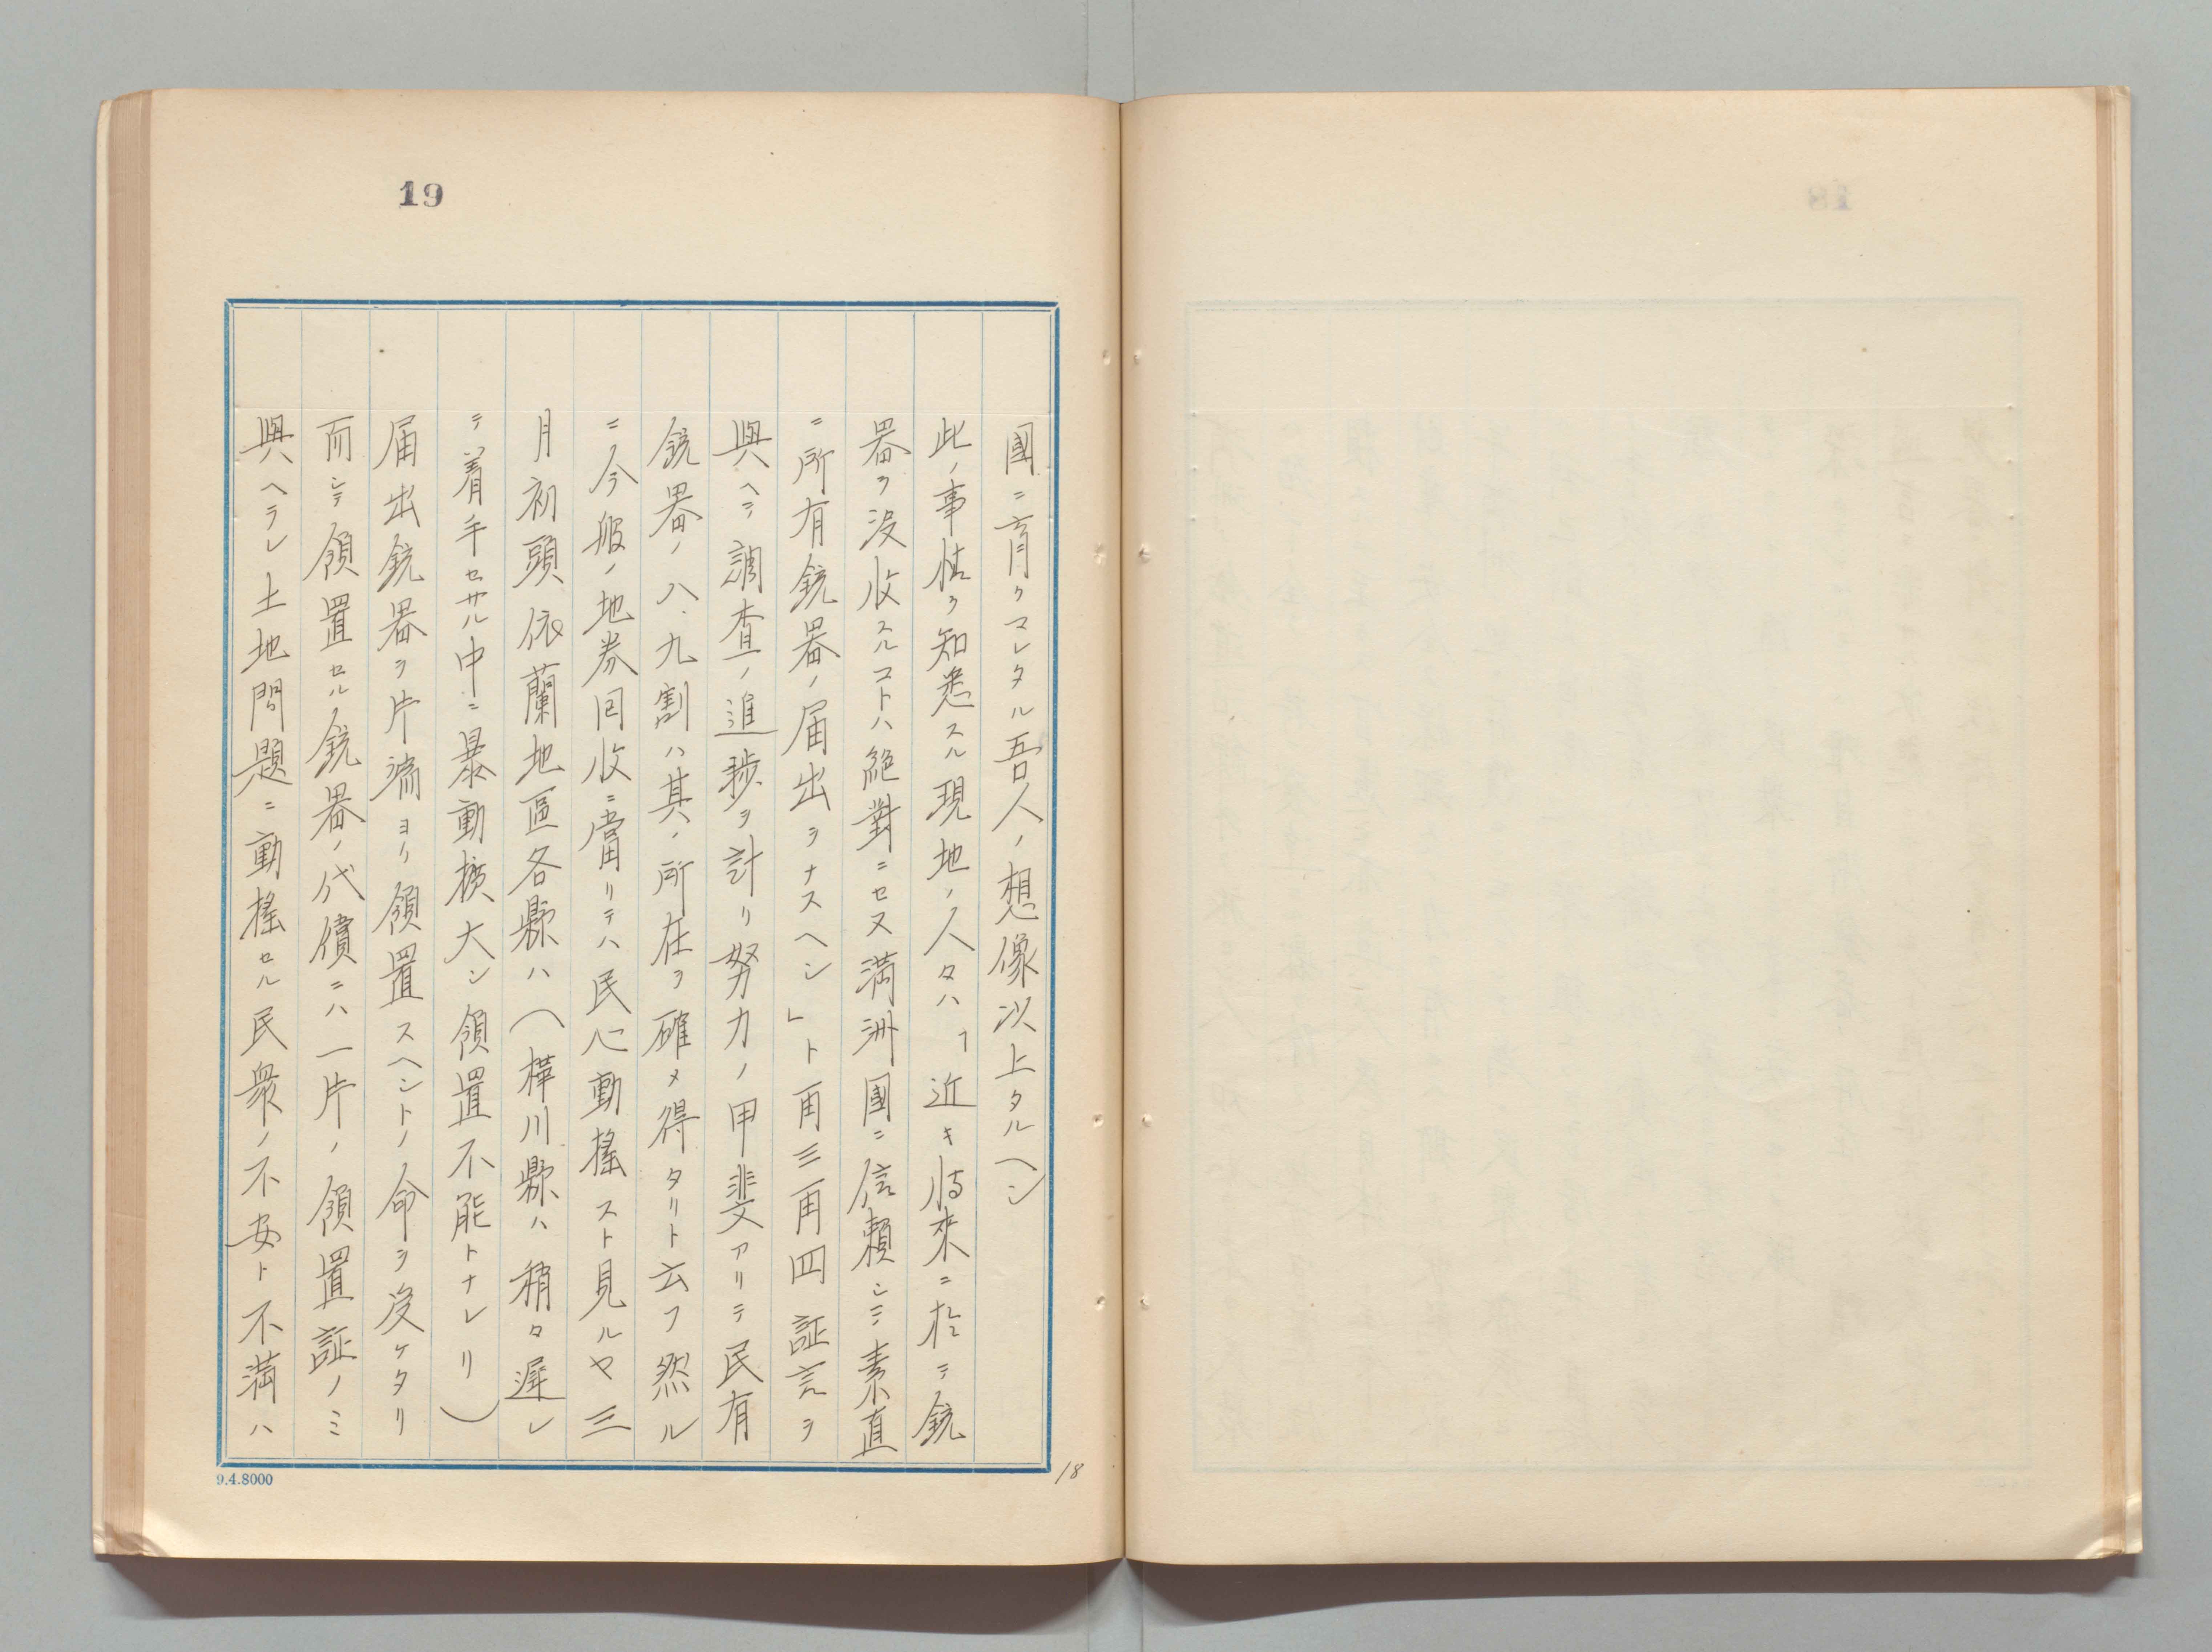 19
國ニ育クマレタル吾人ノ想像以上タルヘシ
此ノ事情ヲ知悉スル現地ノ人タハ「近キ将來ニ於テ銃
器ヲ没收スルコトハ絶對ニセヌ満洲國ニ信頼シテ素直
ニ所有銃器ノ届出ヲナスヘシ」ト再三再四証言ヲ
與ヘテ調査ノ進捗ヲ計リ努力ノ甲斐アリテ民有
銃器ノ八、九割ハ其ノ所在ヲ確メ得タリト云フ然ル
ニ今般ノ地券回收ニ當リテハ民心動搖スト見ルヤ三
月初頭依蘭地區各縣ハ（樺川縣ハ稍々遅レ
テ着手セサル中ニ暴動擴大シ領置不能トナレリ）
届出銃器ヲ片端ヨリ領置スヘシトノ命ヲ受ケタリ
而シテ領置セル銃器ノ代償ニハ一片ノ領置証ノミ
與ヘラレ土地問題ニ動搖セル民衆ノ不安ト不満ハ
9.4.8000
18